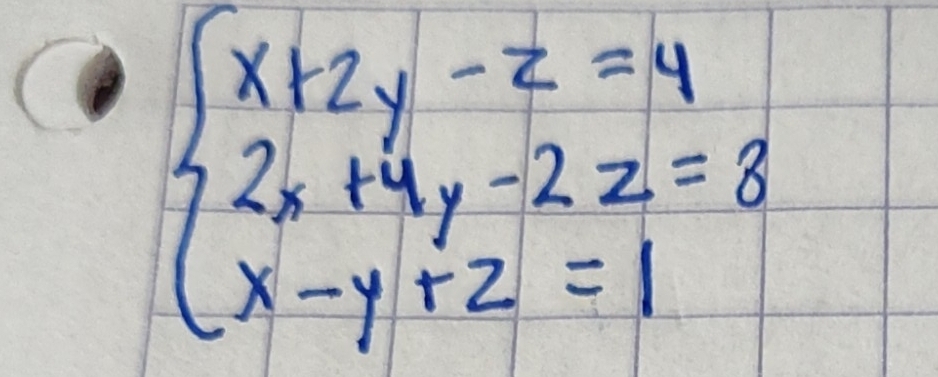 x+2y-z=4
2x+4y-2z=8
x-y+z=1